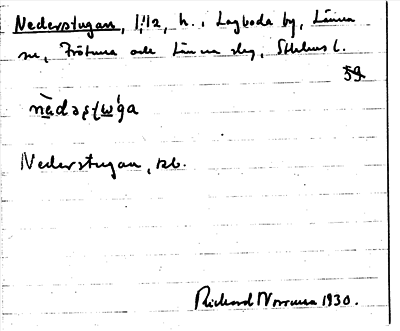 Nederstugan, 1/12, h., Lagboda by, Länna
sn, Frötuna och Länna slg, Sthlms l.
59.
Nederstugan, skb.
Richard Norrman 1930.